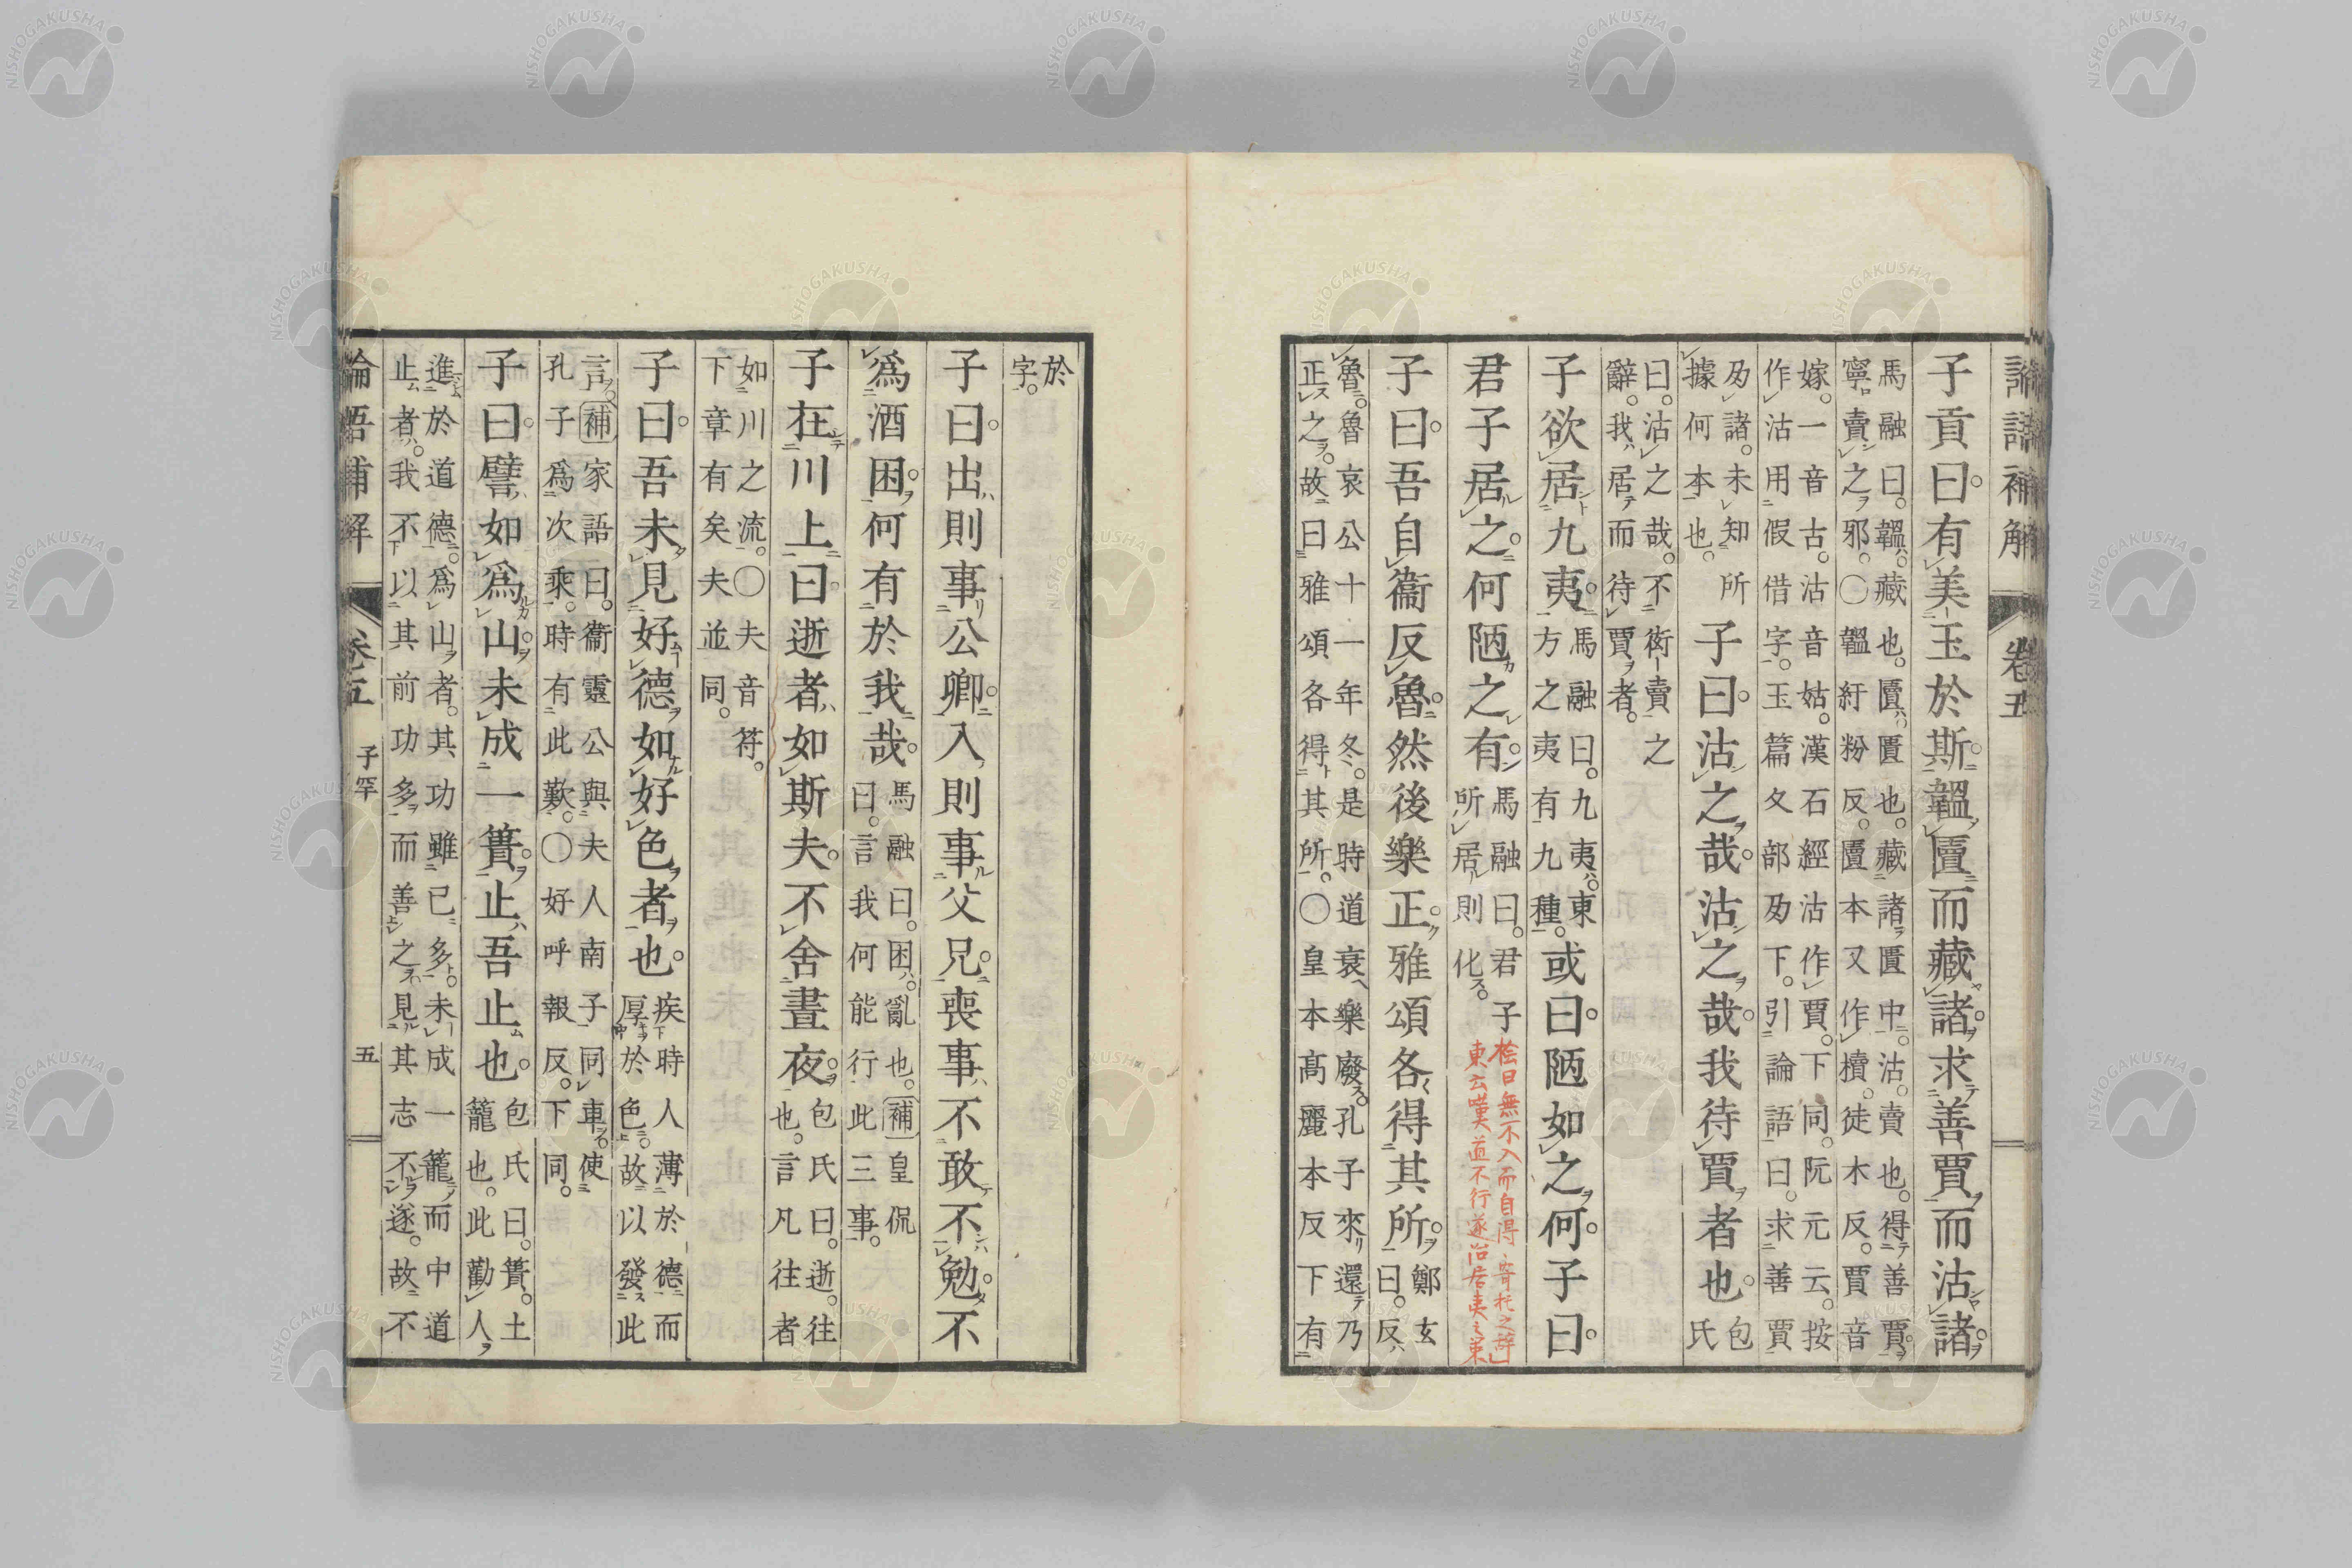 論語補解 卷五
子貢曰有美玉於斯韞匵而藏諸求善賈而沽諸
馬融曰韞藏也匵匱也藏諸匱中沽賣也得善賈
寧賣之邪〇韞紆粉反匵本又作櫝徒木反賈音
嫁一音古沽音姑漢石經沽作賈下同阮元云按
作沽用假借字玉篇夂部夃下引論語曰求善賈
夃諸未知所
據何本也
子曰沽之哉沽之哉我待賈者也
包氏
曰沽之哉不衒賣之
辭我居而待賈者
子欲居九夷
馬融曰九夷東
方之夷有九種
或曰陋如之何子曰
君子居之何陋之有
馬融曰君子
所居則化
桧曰無不入而自得寄托之辞
東云嘆道不行遂
子曰吾自衞反魯然後樂正雅頌各得其所
鄭玄
曰反
魯魯哀公十一年冬是時道衰樂廢孔子來還乃
正之故曰雅頌各得其所〇皇本高麗本反下有
於
字
子曰出則事公卿入則事父兄喪事不敢不勉不
爲酒困何有於我哉
馬融曰困亂也補皇侃
曰言我何能行此三事
子在川上曰逝者如斯夫不舍晝夜
包氏曰逝往
也言凡往者
如川之流〇夫音符
下章有矣夫並同
子曰吾未見好德如好色者也
疾時人薄於德而
厚於色故以發此
言補家語曰衞靈公與夫人南子同車使
孔子爲次乘時有此歎〇好呼報反下同
子曰譬如爲山未成一簣止吾止也
包氏曰簣土
籠也此勸人
進於道德爲山者其功雖已多未成一籠而中道
止者我不以其前功多而善之見其志不遂故不
論語補解 卷五 子罕 五
NISHOGAKUSHA